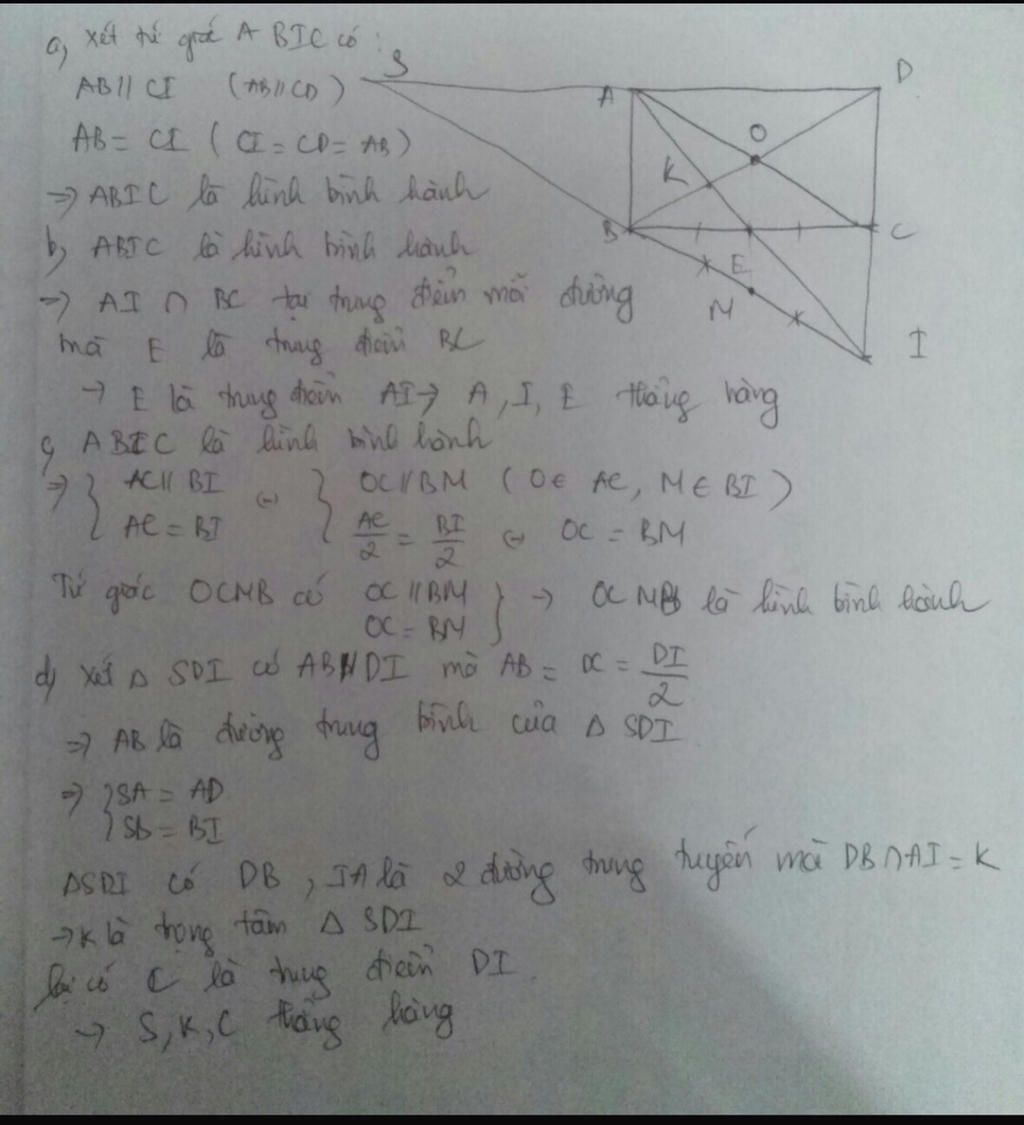 a, xét tứ giác ABIC có :
AB // CI (AB // CD)
AB = CI (CI = CD = AB)
=> ABIC là hình bình hành
b, ABIC là hình bình hành
=> AI ∩ BC tại trung điểm mỗi đường
mà E là trung điểm BC
-> E là trung điểm AI -> A, I, E thẳng hàng
c, ABIC là hình bình hành
=> { AC // BI <-> { OC // BM (O ∈ AC, M ∈ BI)
AC = BI AC/2 = BI/2 <-> OC = BM
Tứ giác OCMB có OC // BM } -> OCMB là hình bình hành
OC = BM
d, xét Δ SDI có AB // DI mà AB = DC = DI/2
=> AB là đường trung bình của Δ SDI
=> { SA = AD
SB = BI
ΔSDI có DB, IA là 2 đường trung tuyến mà DB ∩ AI = K
-> K là trọng tâm Δ SDI
lại có C là trung điểm DI
-> S, K, C thẳng hàng
S
A
D
O
K
B
E
C
M
I